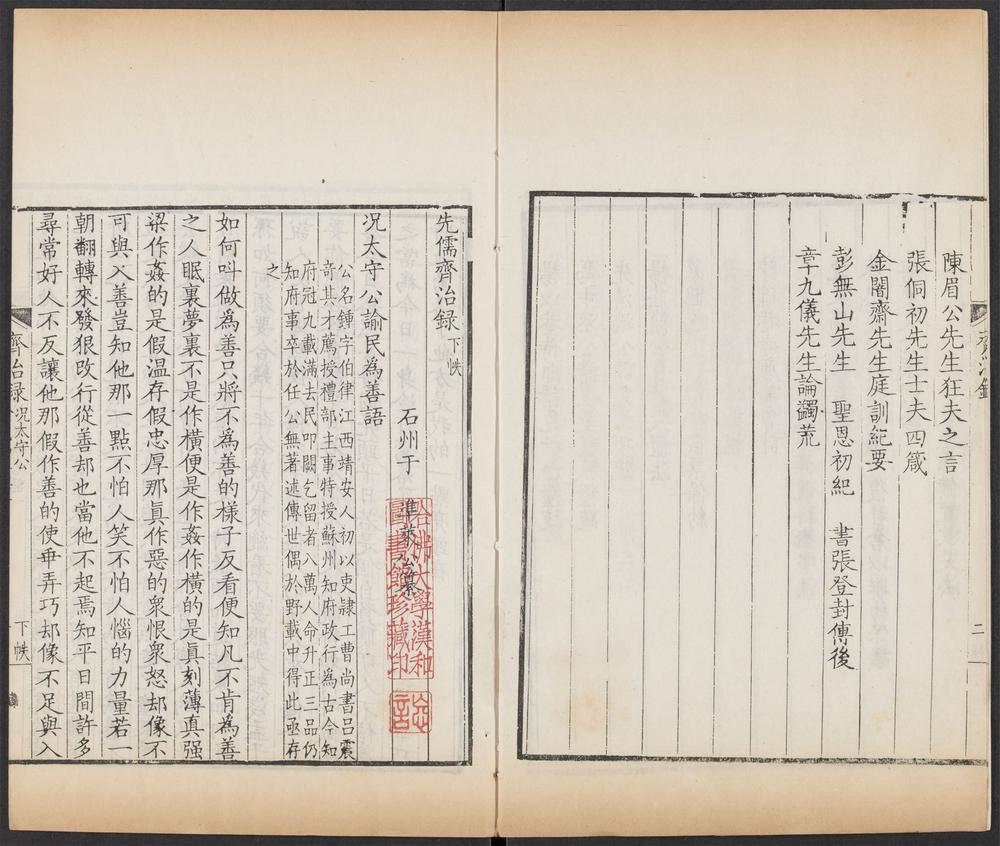 陳眉公先生狂夫之言
張侗初先生士夫四箴
金闇齋先生庭訓紀要
彭無山先生 聖恩初紀 書張登封傳後
章九儀先生論蠲荒
二
先儒齊治録 下帙
石州于 準萊公纂
哈佛大學漢和圖書館珍藏印
況太守公諭民爲善語
公名鍾字伯律江西靖安人初以吏隷工曹尚書吕震
竒其才薦授禮部主事特授蘇州知府政行爲古今知
府冠九載滿去民叩闕乞留者八萬人命升正三品仍
知府事卒於任公無著述傳世偶於野載中得此亟存
之
如何呌做爲善只將不爲善的樣子反看便知凡不肯爲善
之人眠裏夢裏不是作橫便是作姦作橫的是真刻薄真强
梁作姦的是假温存假忠厚那真作惡的衆恨衆怒却像不
可與入善豈知他那一點不怕人笑不怕人惱的力量若一
朝翻轉來發狠改行從善却也當他不起焉知平日間許多
尋常好人不反讓他那假作善的使乖弄巧却像不足與入
齊治録 況太守公
下帙